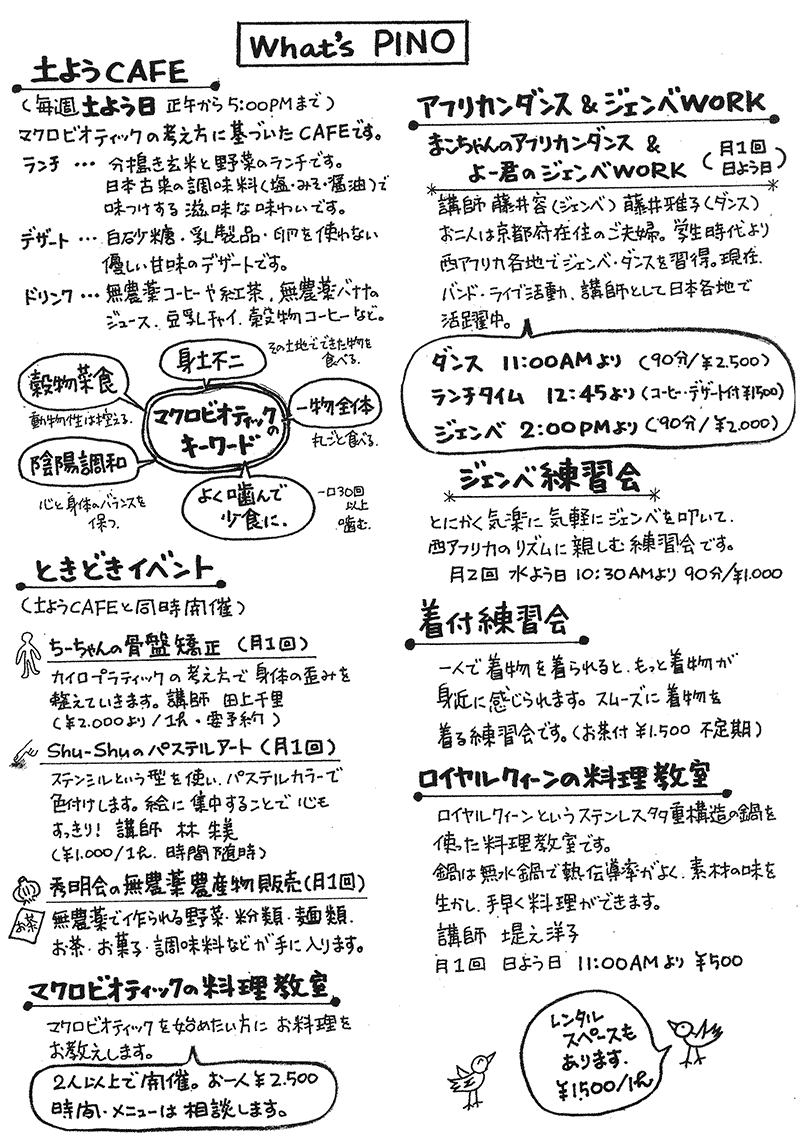 What's PINO
土ようCAFE
(毎週土よう日 正午から5:00PMまで)
マクロビオティックの考え方に基づいたCAFEです。
ランチ … 分搗き玄米と野菜のランチです。
日本古来の調味料(塩・みそ・醤油)で
味つけする滋味な味わいです。
デザート … 白砂糖・乳製品・卵を使わない
優しい甘味のデザートです。
ドリンク … 無農薬コーヒーや紅茶、無農薬バナナの
ジュース、豆乳チャイ、穀物コーヒーなど。
マクロビオティックの
キーワード
身土不二
その土地でできた物を
食べる。
穀物菜食
動物性は控える。
一物全体
丸ごと食べる。
陰陽調和
心と身体のバランスを
保つ。
よく噛んで
少食に。
一口30回
以上
噛む。
ときどきイベント
(土ようCAFEと同時開催)
ちーちゃんの骨盤矯正 (月1回)
カイロプラティックの考え方で身体の歪みを
整えていきます。講師 田上千里
(¥2.000より/1h・要予約)
Shu-Shuのパステルアート (月1回)
ステンシルという型を使い、パステルカラーで
色付けします。絵に集中することで心も
すっきり! 講師 林 朱美
(¥1.000/1h. 時間随時)
秀明会の無農薬農産物販売(月1回)
お茶
無農薬で作られる野菜・粉類・麺類、
お茶・お菓子・調味料などが手に入ります。
マクロビオティックの料理教室
マクロビオティックを始めたい方に お料理を
お教えします。
2人以上で開催。お一人¥2.500
時間・メニューは相談します。
アフリカンダンス&ジェンベWORK
まこちゃんのアフリカンダンス &
よー君のジェンベWORK
(月1回
日よう日)
講師 藤井容(ジェンベ) 藤井雅子(ダンス)
お二人は京都府在住のご夫婦。学生時代より
西アフリカ各地でジェンベ・ダンスを習得。現在、
バンド・ライブ活動、講師として日本各地で
活躍中。
ダンス 11:00AMより (90分/¥2.500)
ランチタイム 12:45より (コーヒー・デザート付¥1500)
ジェンベ 2:00PMより (90分/¥2.000)
ジェンベ練習会
とにかく気楽に気軽にジェンベを叩いて、
西アフリカのリズムに親しむ練習会です。
月2回 水よう日 10:30AMより 90分/¥1.000
着付練習会
一人で着物を着られると、もっと着物が
身近に感じられます。スムーズに着物を
着る練習会です。(お茶付 ¥1.500 不定期)
ロイヤルクィーンの料理教室
ロイヤルクィーンというステンレス多重構造の鍋を
使った料理教室です。
鍋は無水鍋で熱伝導率がよく、素材の味を
生かし、手早く料理ができます。
講師 堤え洋子
月1回 日よう日 11:00AMより ¥500
レンタル
スペースも
あります。
¥1500/1h